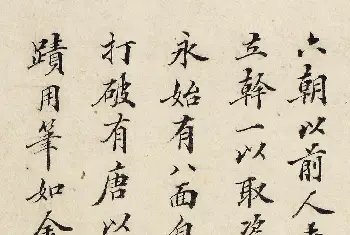 六朝以前人
立幹一以取
永始有八面
打破有唐以
蹟用筆如金